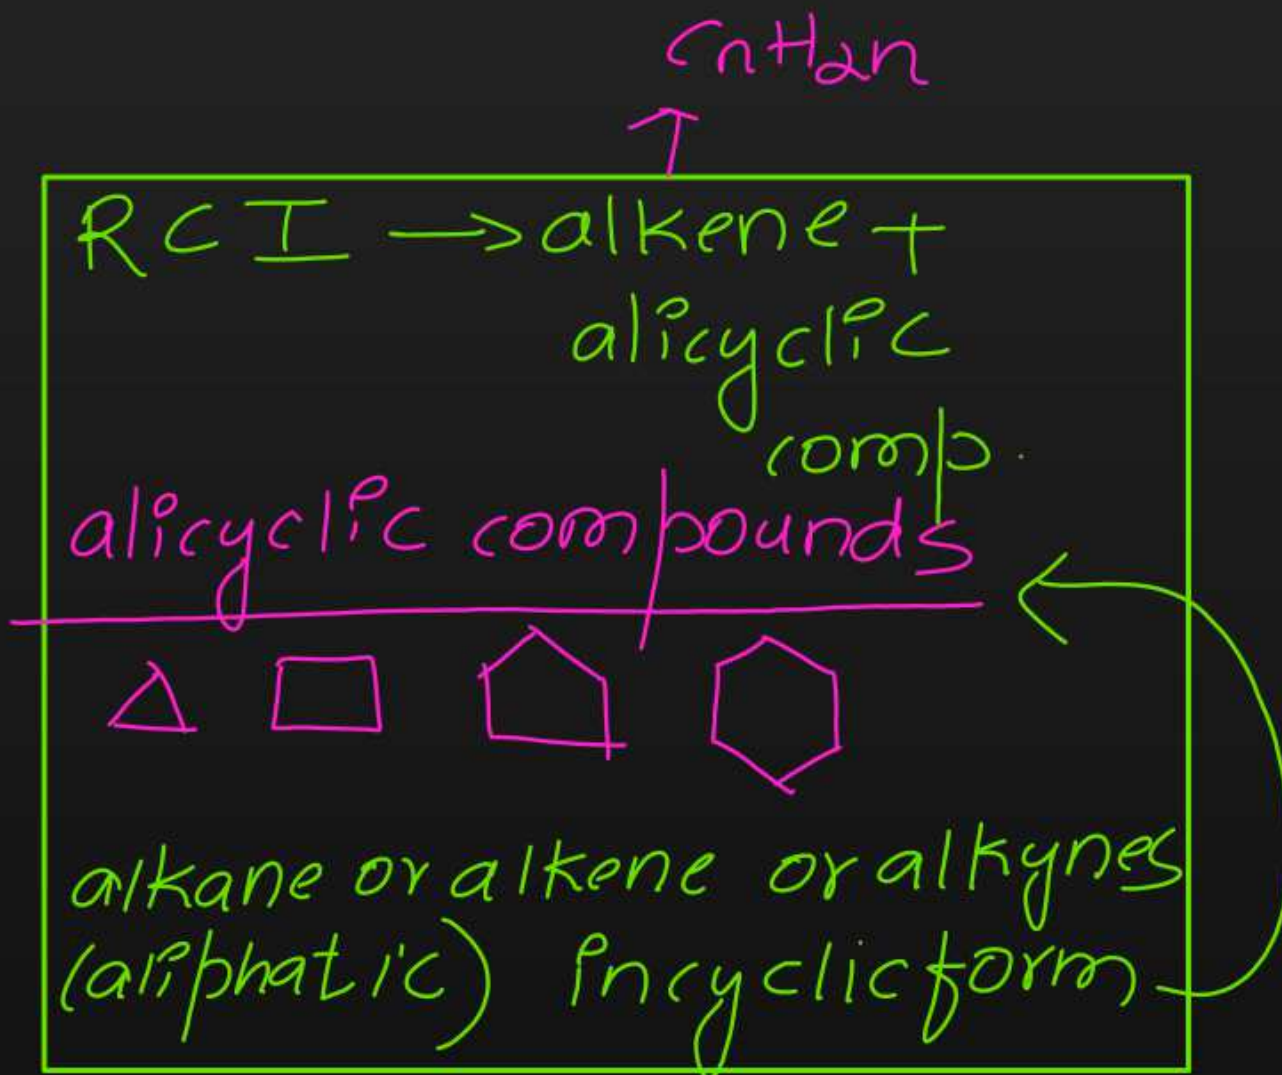 CnH2n
RCI → alkene +
alicyclic
comp.
alicyclic compounds
alkane or alkene or alkynes
(aliphatic) in cyclic form